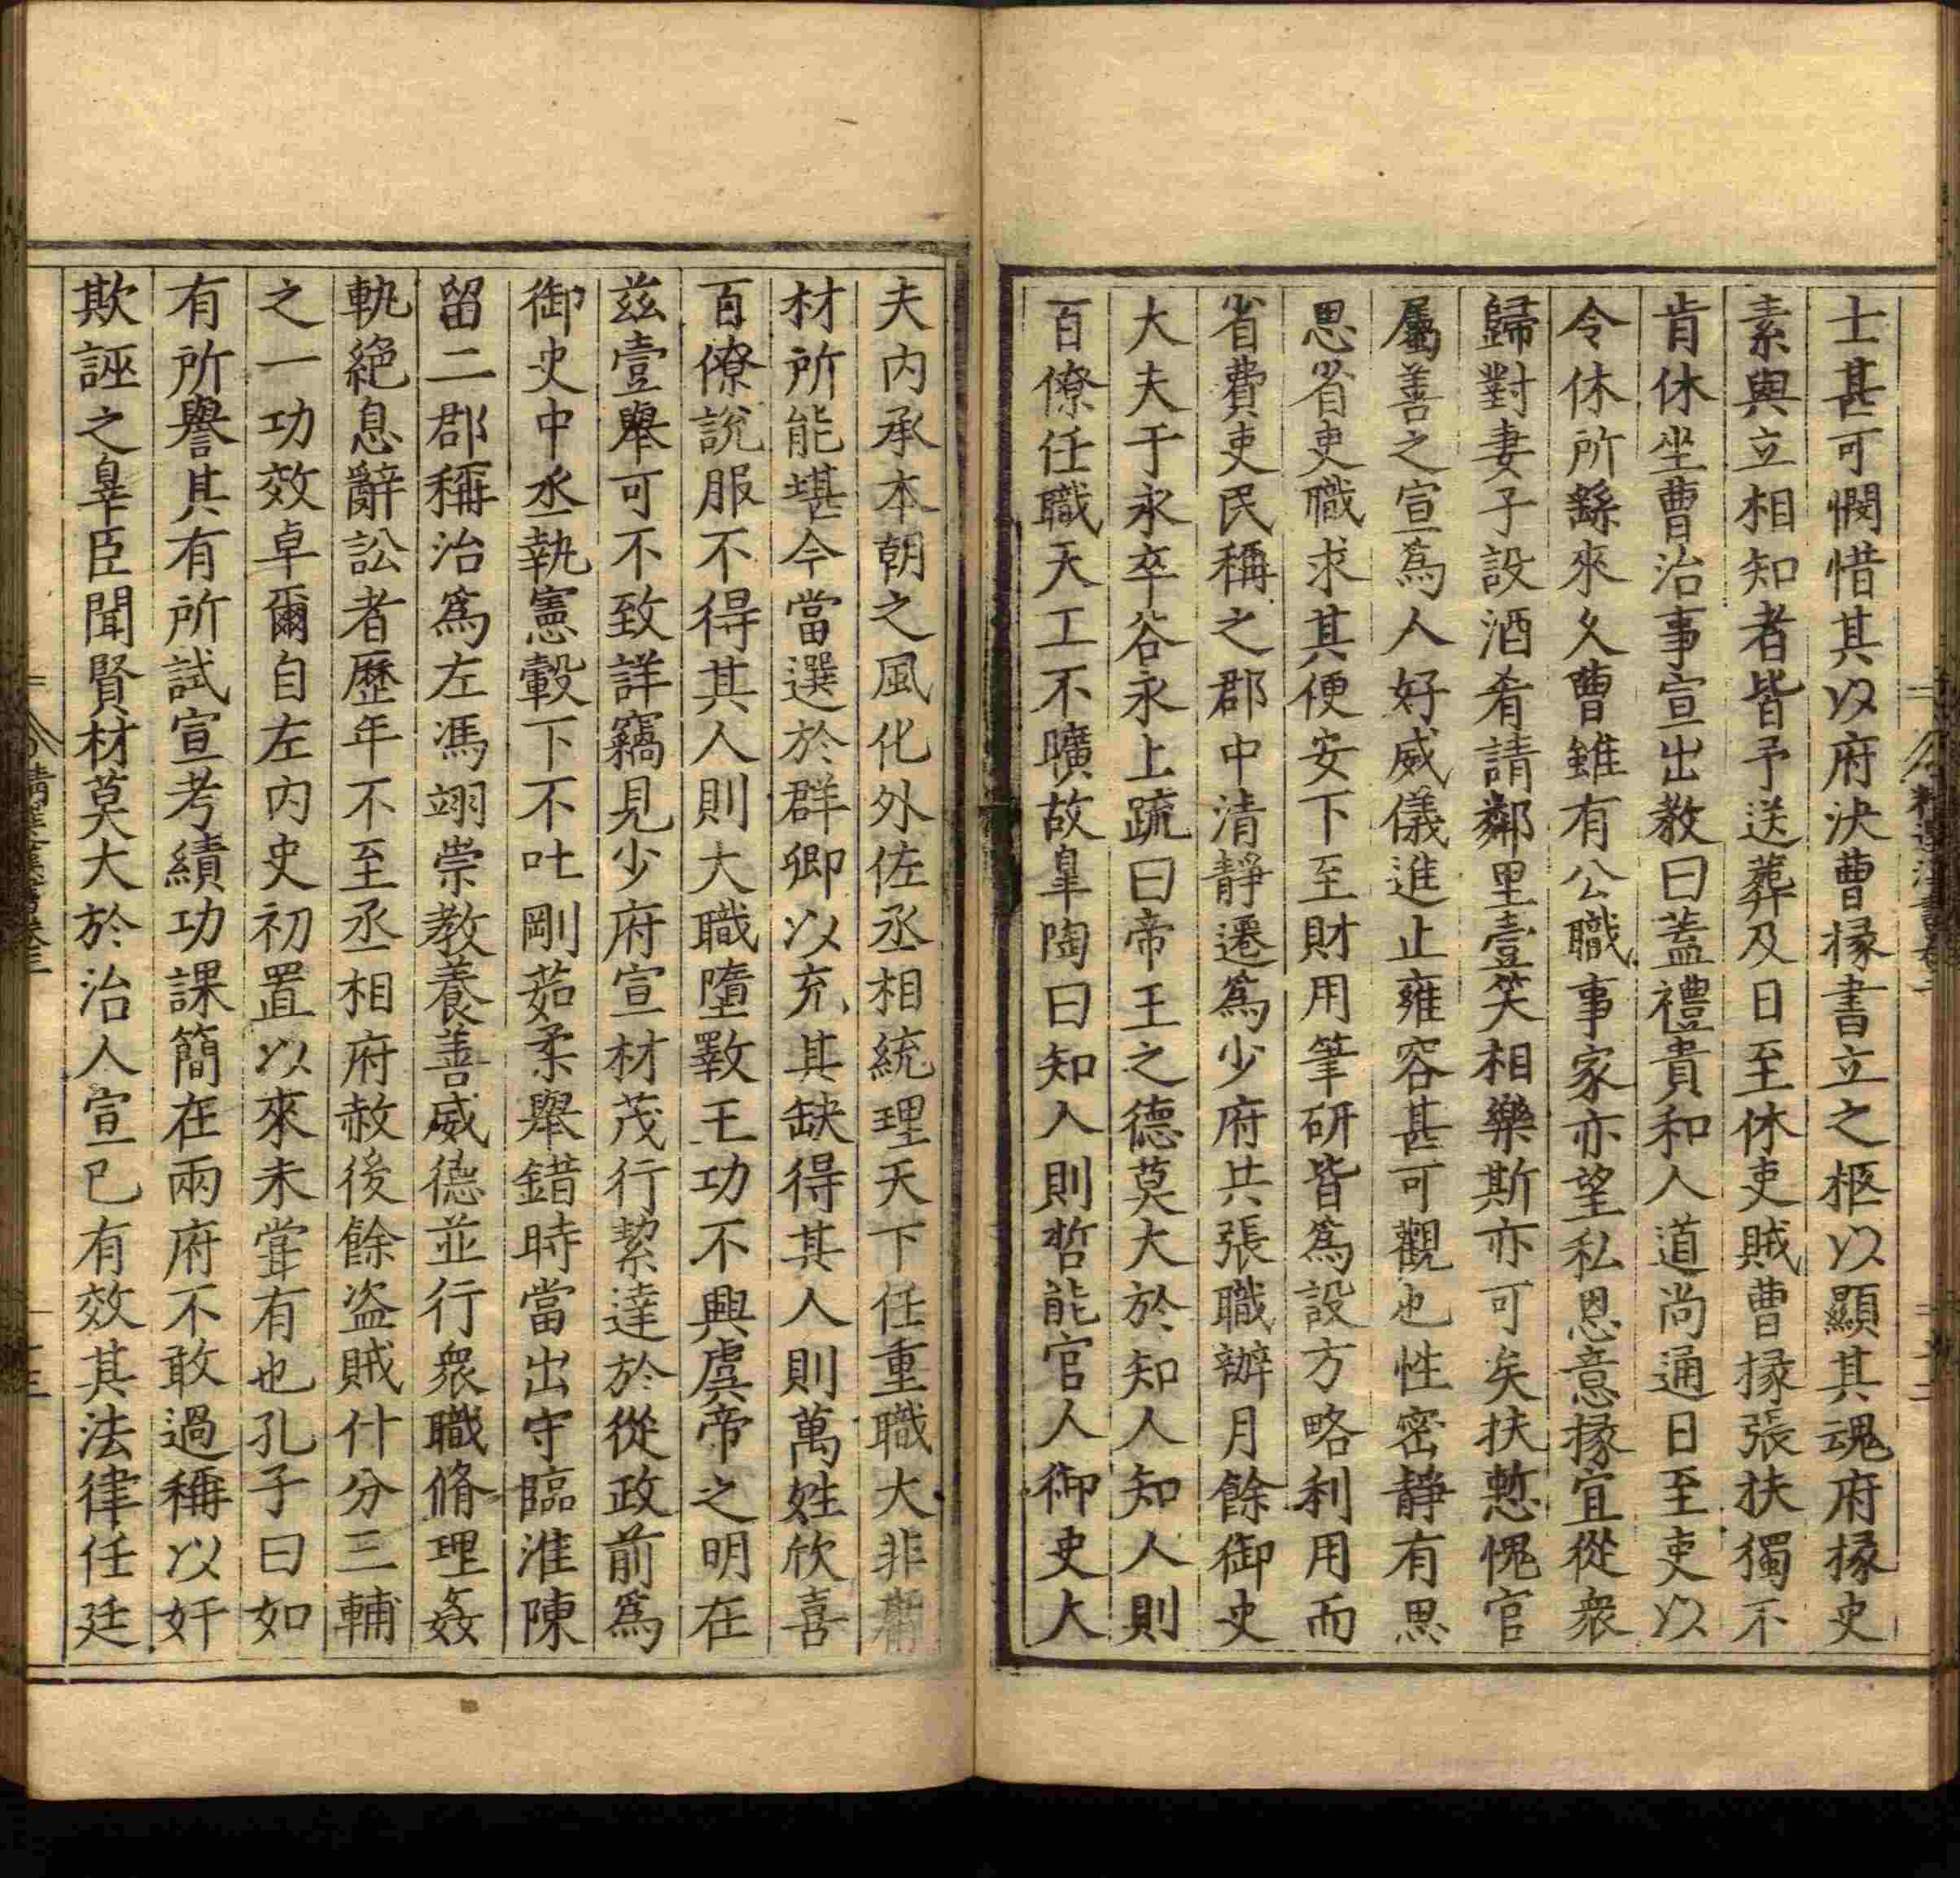 士甚可憫惜其以府決曹掾書立之柩以顯其魂府掾史
素與立相知者皆予送葬及日至休吏賊曹掾張扶獨不
肯休坐曹治事宣出教曰蓋禮貴和人道尚通日至吏以
令休所繇來久曹雖有公職事家亦望私恩意掾宜從衆
歸對妻子設酒肴請鄰里壹笑相樂斯亦可矣扶慙愧官
屬善之宣爲人好威儀進止雍容甚可觀也性密靜有思
思省吏職求其便安下至財用筆研皆爲設方略利用而
省費吏民稱之郡中清靜遷爲少府共張職辦月餘御史
大夫于永卒谷永上疏曰帝王之德莫大於知人知人則
百僚任職天工不曠故皐陶曰知人則哲能官人御史大
夫內承本朝之風化外佐丞相統理天下任重職大非
材所能堪今當選於群卿以充其缺得其人則萬姓欣喜
百僚說服不得其人則大職墮斁王功不興虞帝之明在
茲壹舉可不致詳竊見少府宣材茂行絜達於從政前爲
御史中丞執憲轂下不吐剛茹柔舉錯時當出守臨淮陳
留二郡稱治爲左馮翊崇教養善威德並行衆職脩理姦
軌絕息辭訟者歷年不至丞相府赦後餘盜賊什分三輔
之一功效卓爾自左內史初置以來未嘗有也孔子曰如
有所譽其有所試宣考績功課簡在兩府不敢過稱以奸
欺誣之辠臣聞賢材莫大於治人宣已有效其法律任廷